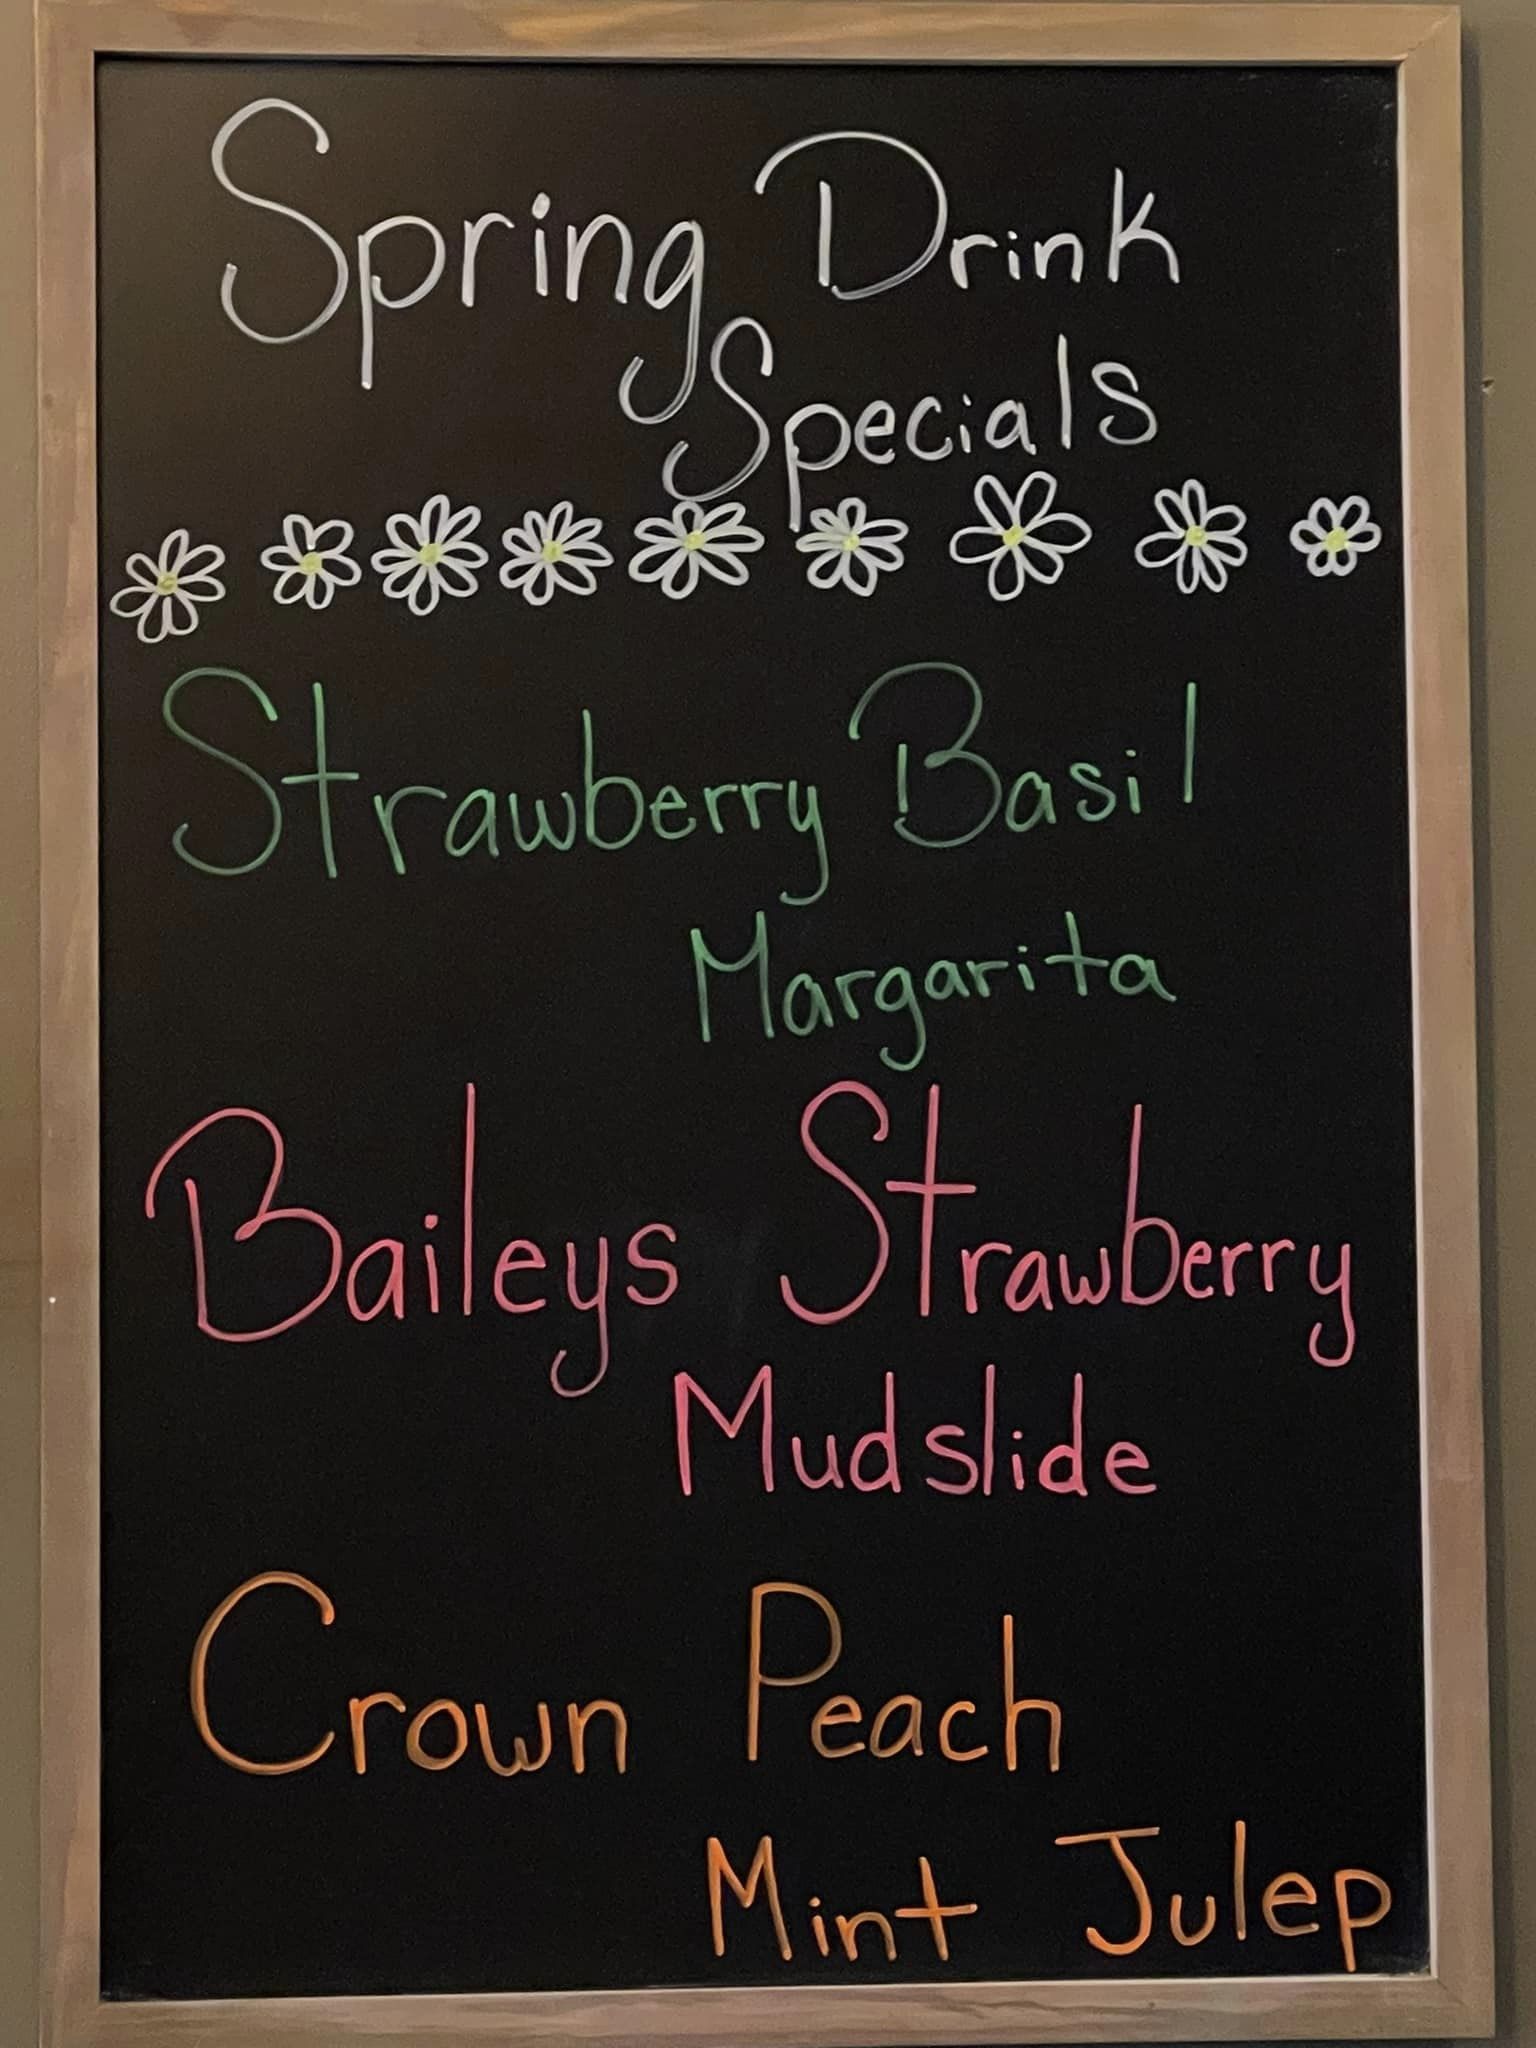 Spring Drink
Specials
Strawberry Basil
Margarita
Baileys Strawberry
Mudslide
Crown Peach
Mint Julep